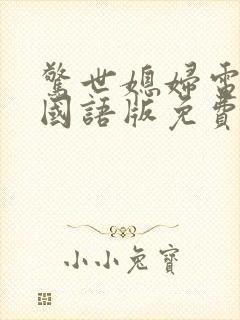 驚世媳婦電
國語版免費
小小兔寶